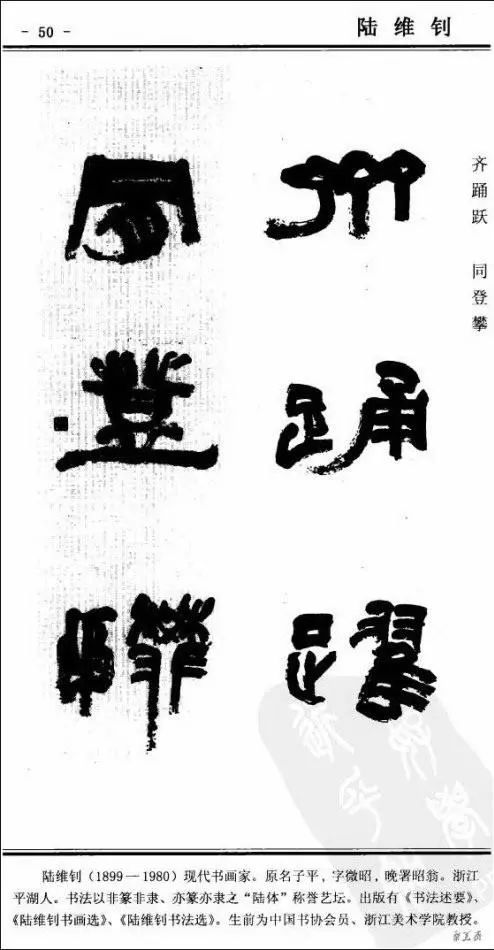 - 50 -
陆维钊
齐踊跃 同登攀
齐踊跃
同登攀
陆维钊（1899—1980）现代书画家。原名子平，字微昭，晚署昭翁。浙江
平湖人。书法以非篆非隶、亦篆亦隶之“陆体”称誉艺坛。出版有《书法述要》、
《陆维钊书画选》、《陆维钊书法选》。生前为中国书协会员、浙江美术学院教授。